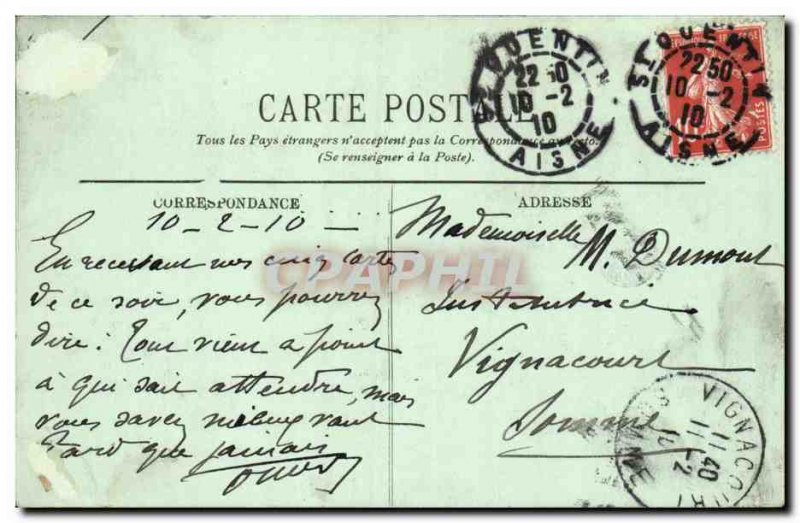 CARTE POSTALE
Tous les Pays étrangers n'acceptent pas la Correspondance au recto.
(Se renseigner à la Poste).
CORRESPONDANCE
10 - 2 - 10
En recevant mes cinq cartes
de ce soir, vous pourrez
dire : Tout vient a point
à qui sait attendre, mais
vous savez mieux vaut
tard que jamais
ADRESSE
Mademoiselle M. Dumont
Institutrice
Vignacourt
Somme
ST QUENTIN
22 50
10 -2
10
AISNE
ST QUENTIN
22 50
10 -2
10
AISNE
POSTES
VIGNACOURT
11 40
11 -2
10
SOMME
CPAPHIL